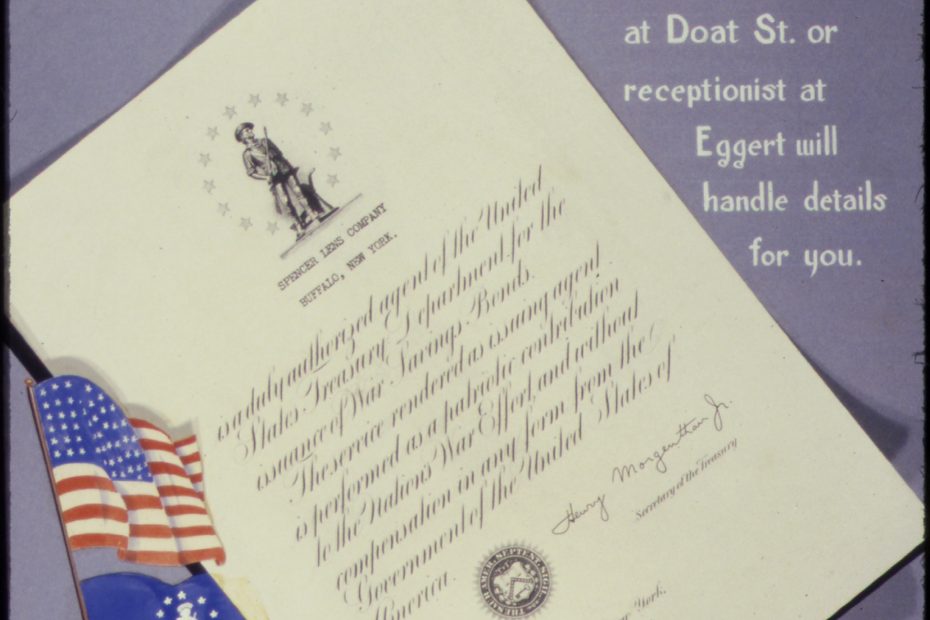 at Doat St. or
receptionist at
Eggert will
handle details
for you.
SPENCER LENS COMPANY
BUFFALO, NEW YORK.
is a duly authorized agent of the United
States Treasury Department for the
issuance of War Savings Bonds.
The service rendered as issuing agent
is performed as a patriotic contribution
to the Nation's War Effort and without
compensation in any form from the
Government of the United States of
America.
Henry Morgenthau Jr.
Secretary of the Treasury
York.